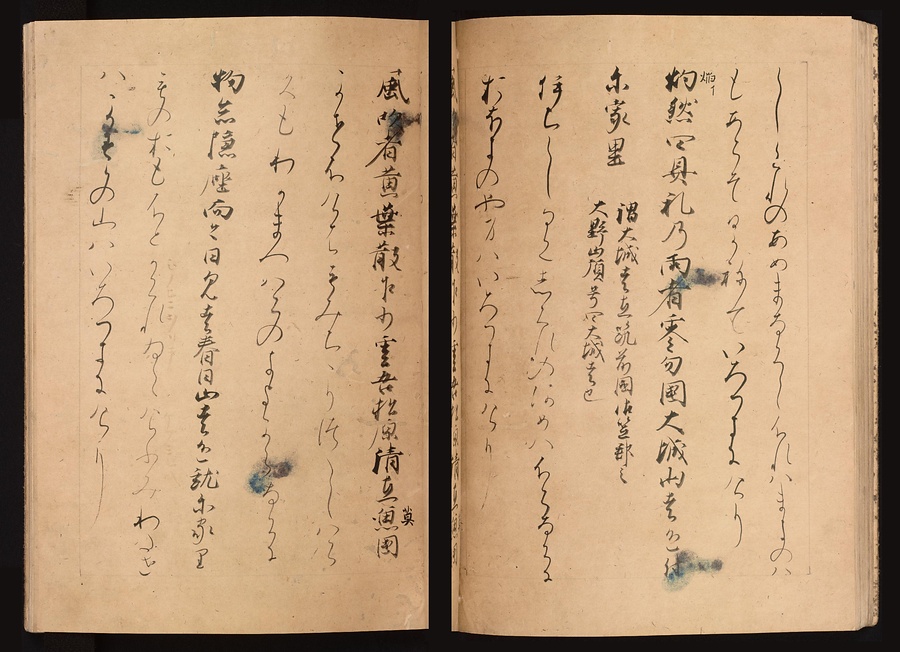 しくれのあめまなくしふれはまきのは
もあらそひかねていろつきにけり
灼然四具礼乃雨者零勿國大城山者色付
尓家里
謂大城者在筑前國御笠郡之
大野山頂号曰大城者也
しくれのあめはふらなくに
おほきのやまはいろつきにけり
風吹者黄葉散乍小雲吾松原清在莫國
かせふけはもみちちりつつしはら
くもわかまつはらのきよからなくに
物念隠座而今日見者春日山者色就尓家里
ものおもふとかくれゐてけふみわたせ
はかすかの山はいろつきにけり